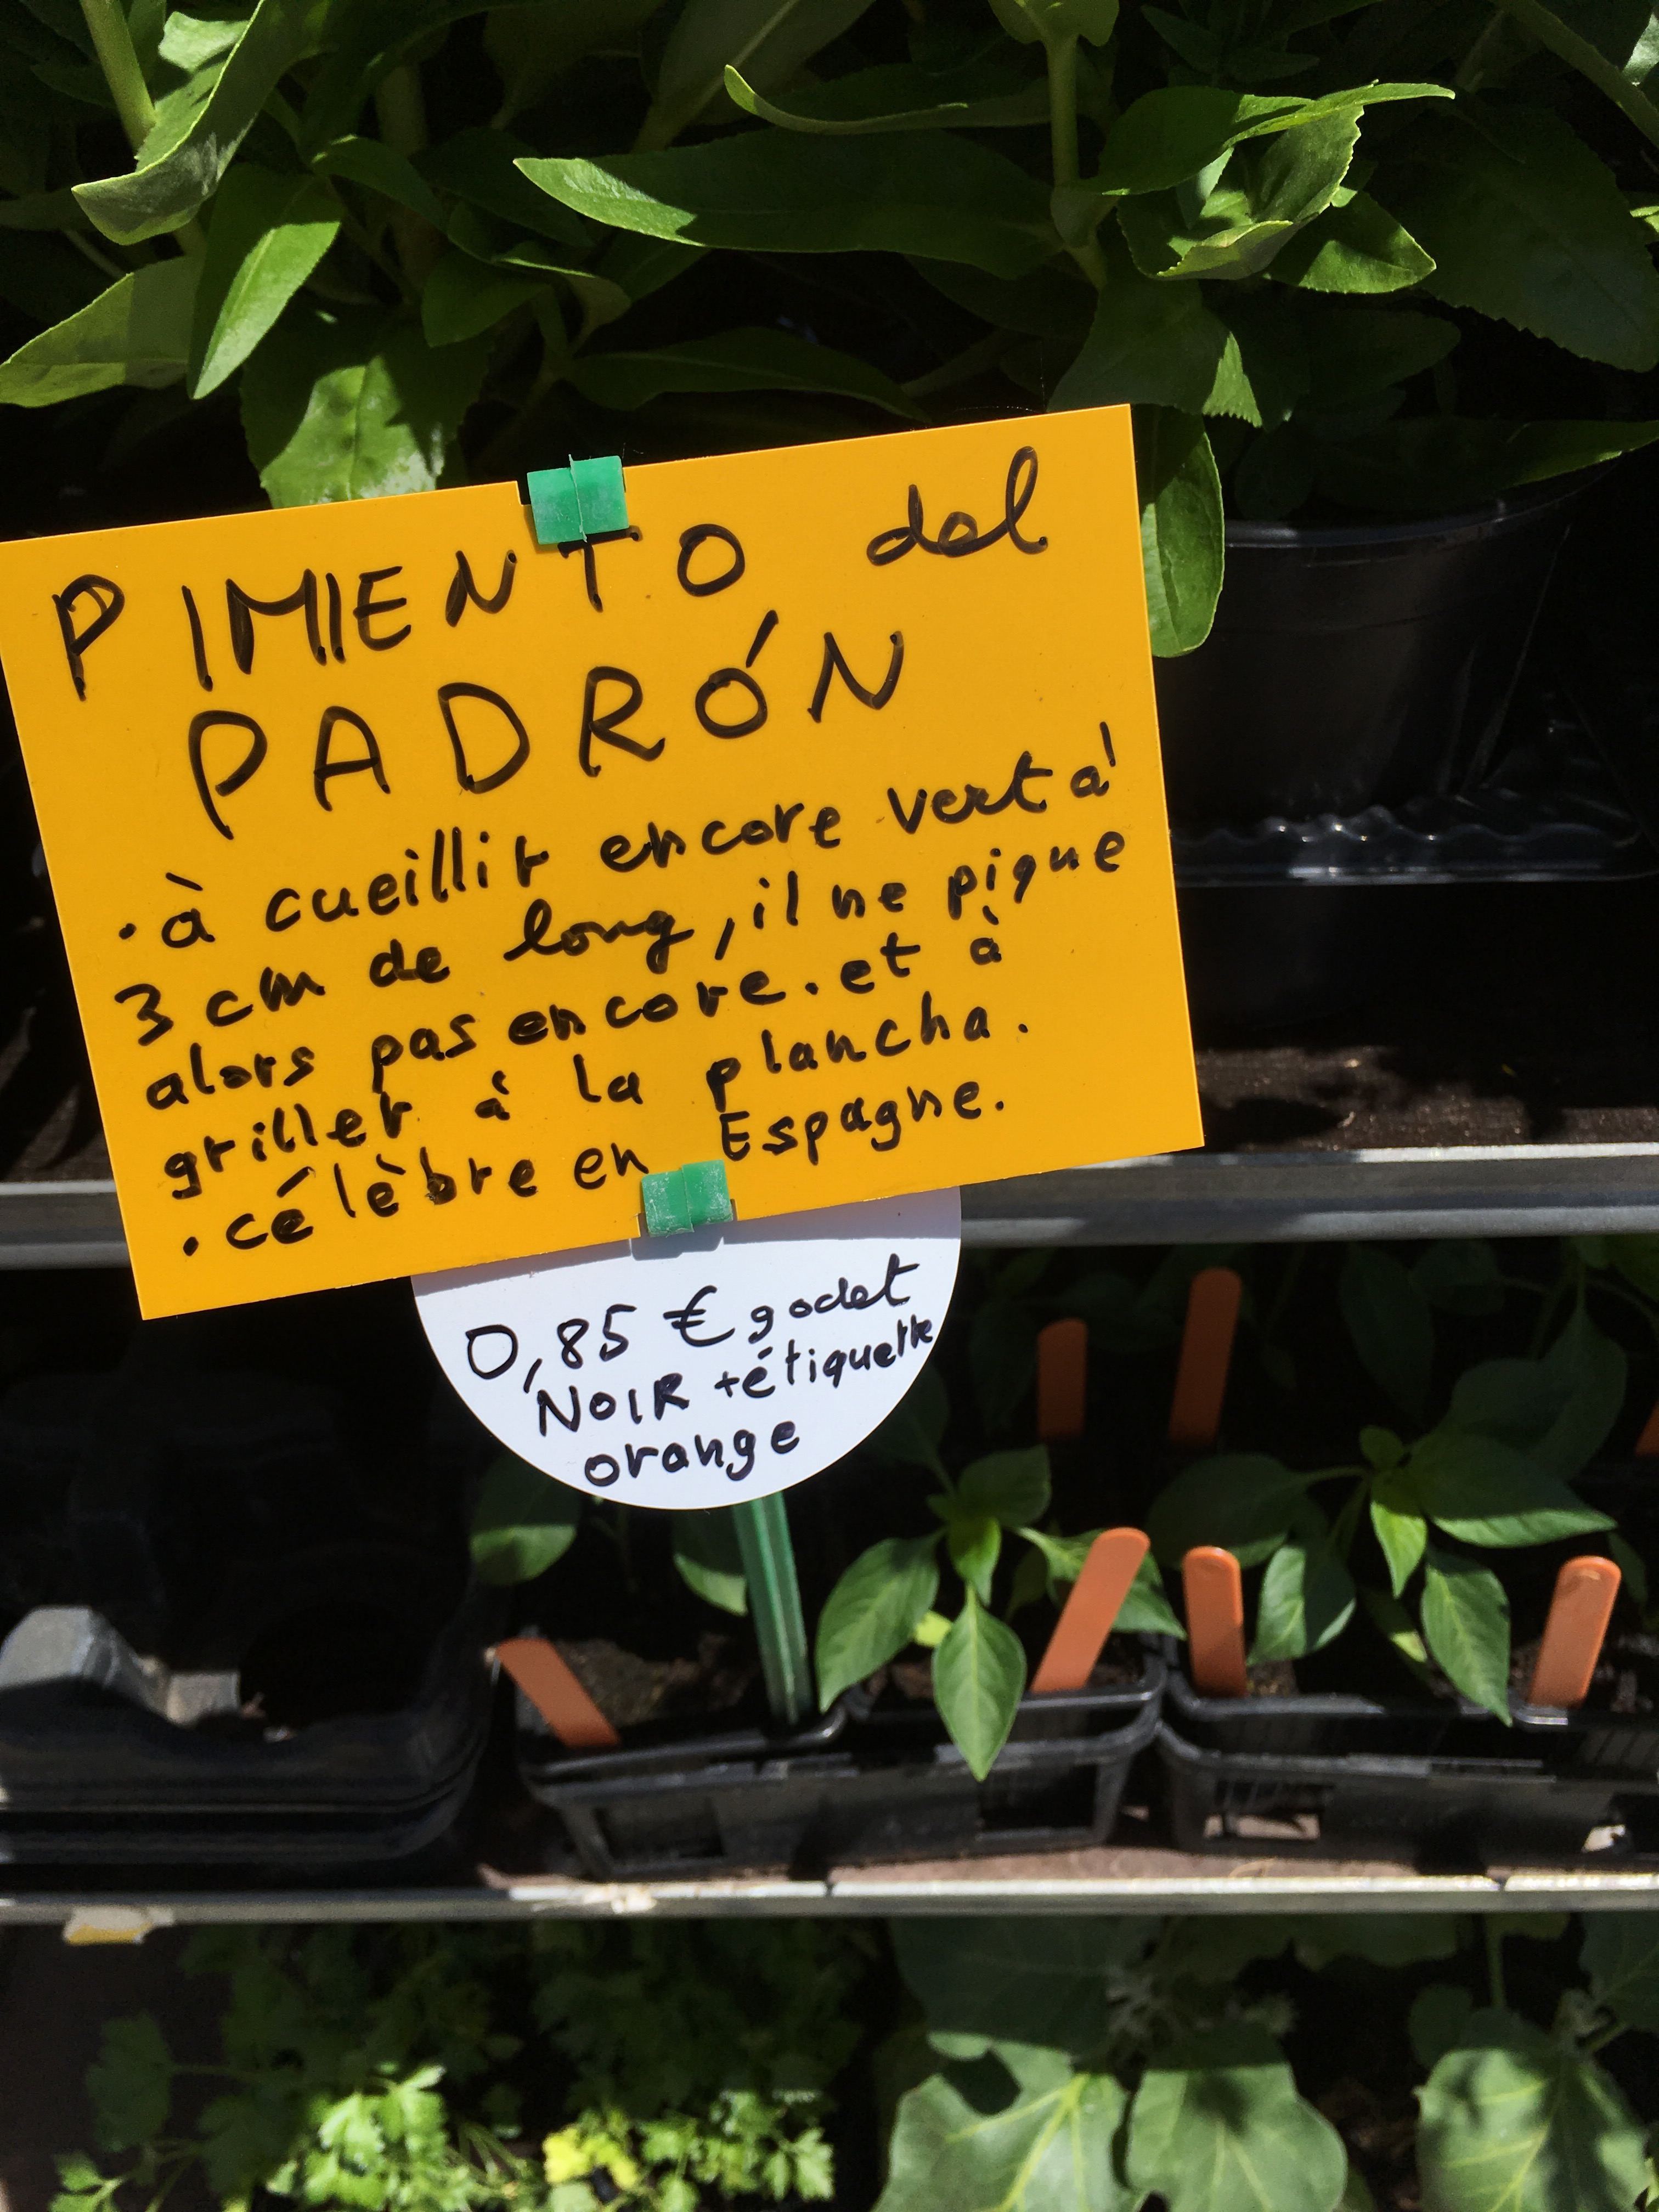 PIMIENTO del
PADRÓN
. à cueillir encore vert à
3 cm de long, il ne pique
alors pas encore. et à
griller à la plancha.
. célèbre en Espagne.
0,85 € godet
NOIR + étiquette
orange